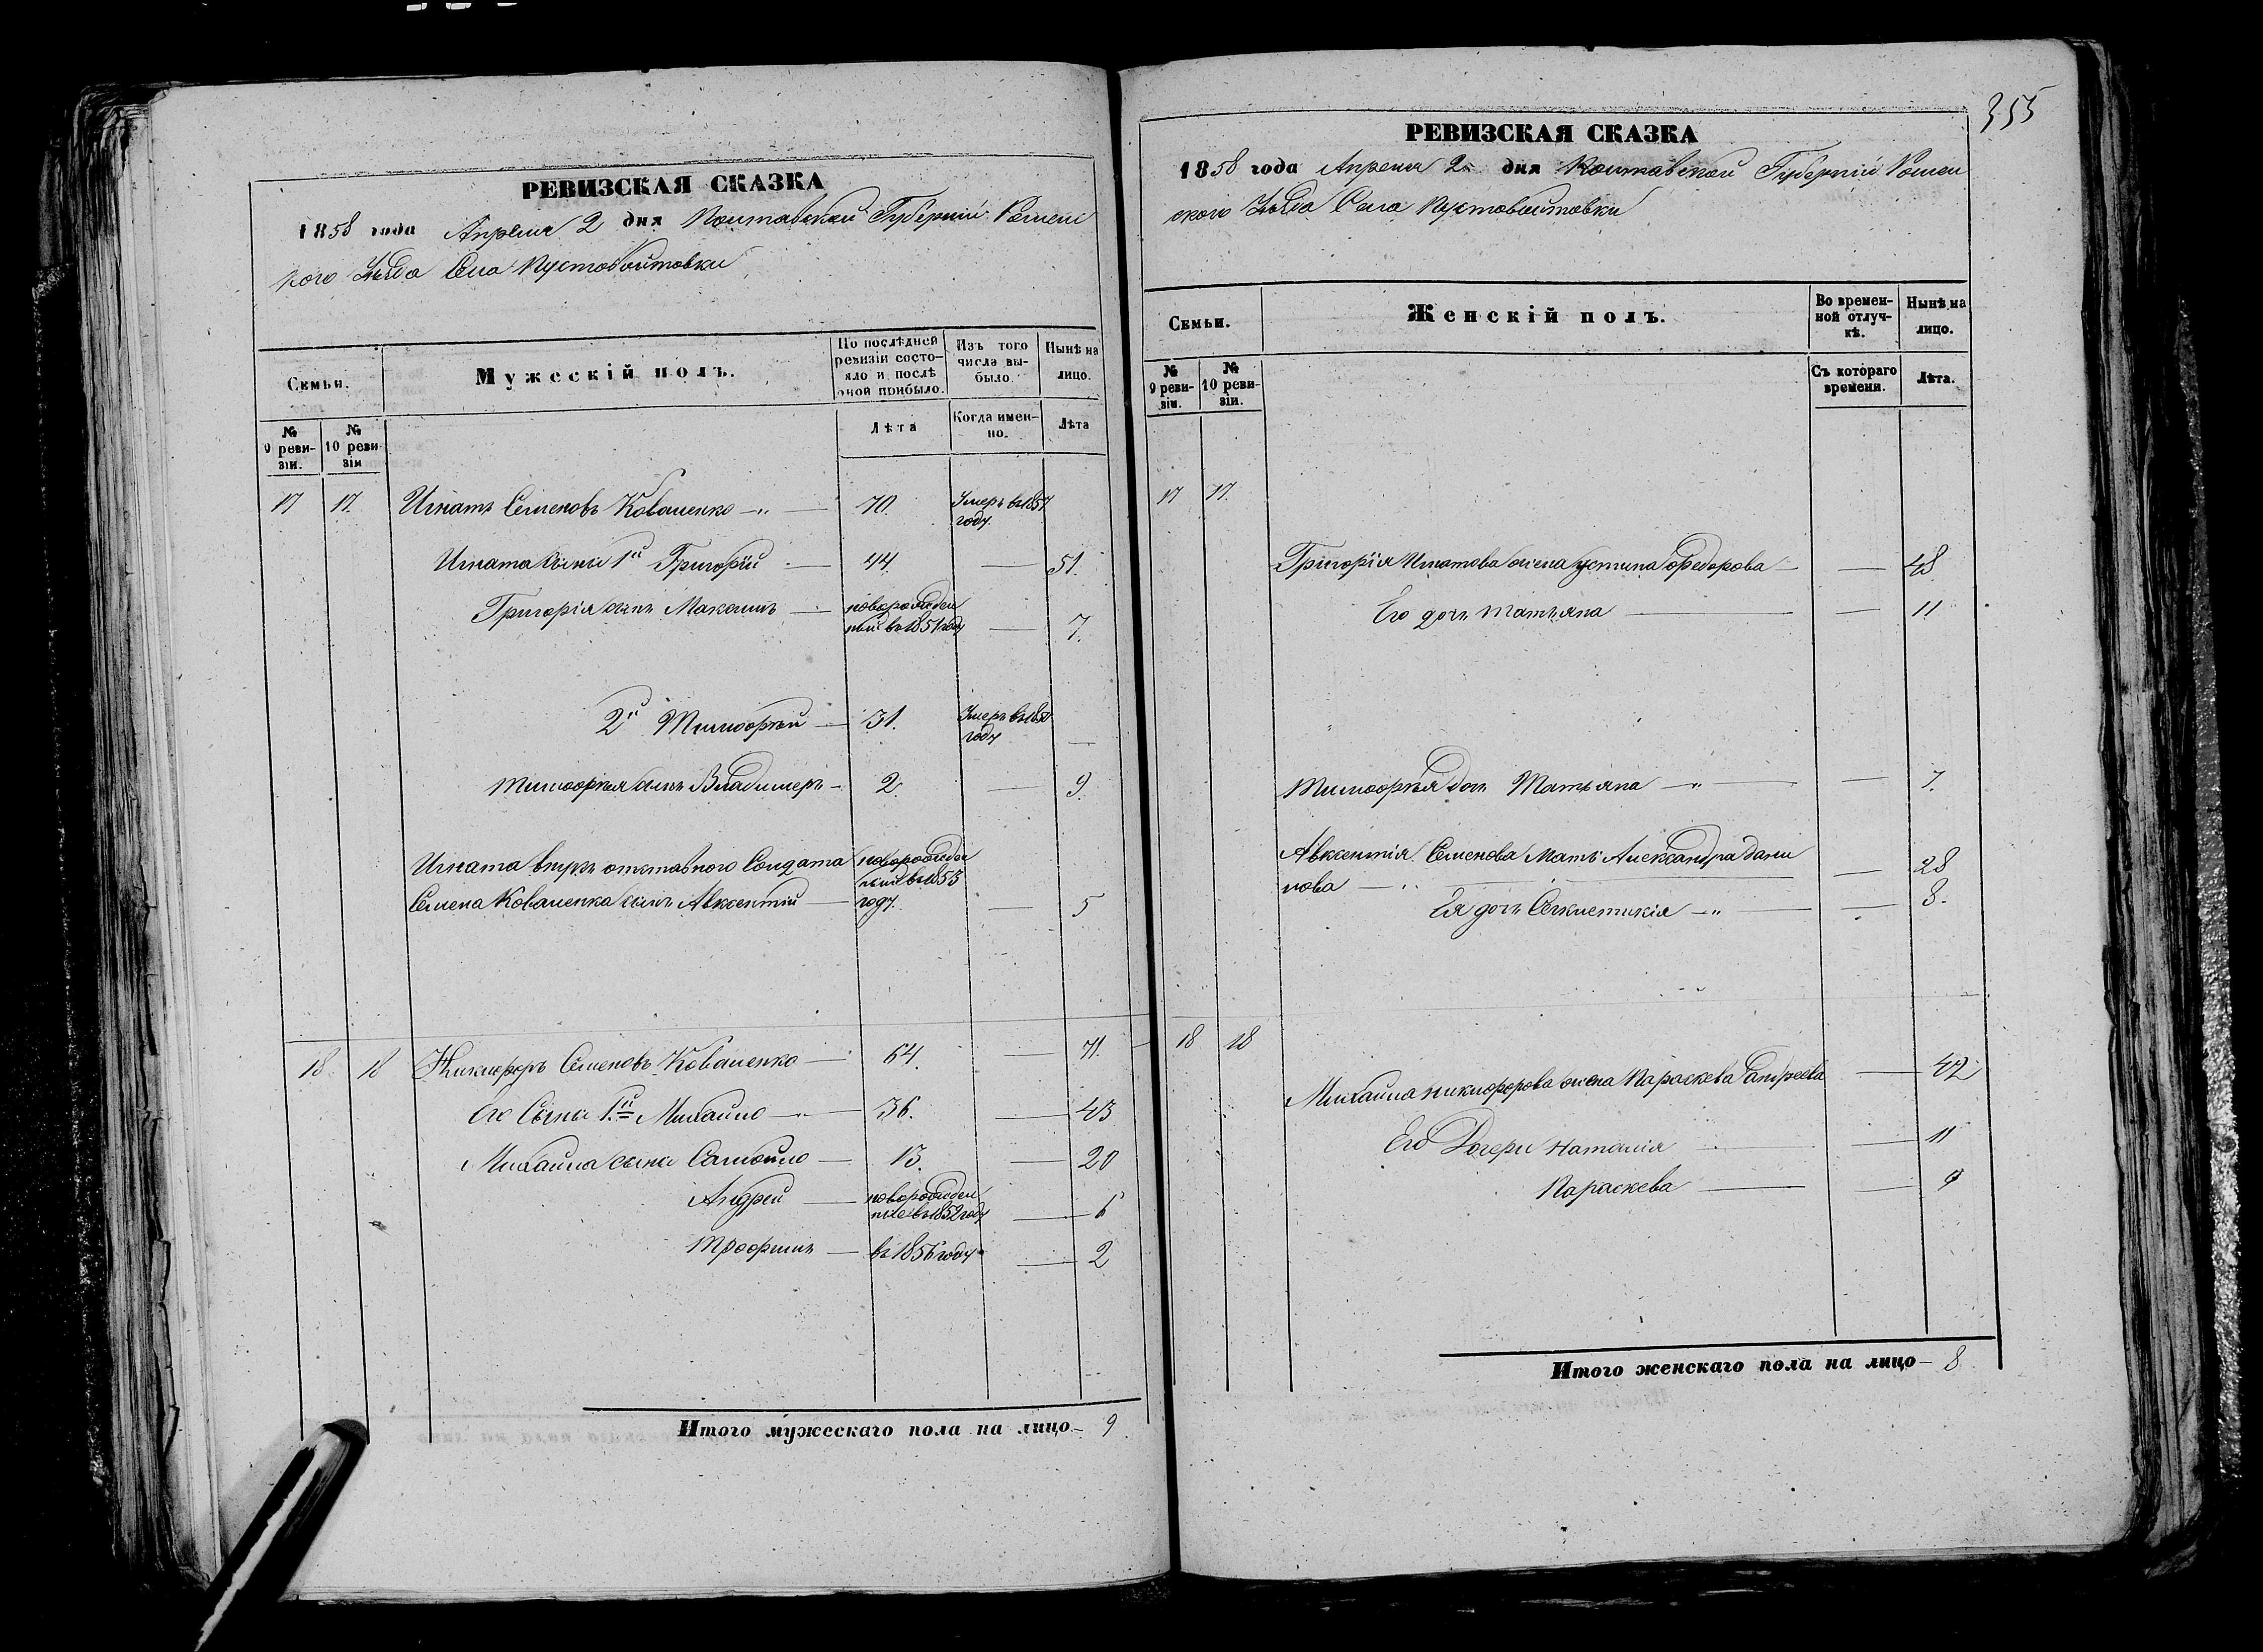 РЕВИЗСКАЯ СКАЗКА
1858 года Апреля 2 дня Полтавской Губерніи Ромен
кого Уѣзда Села Пустовойтовки
Семьи.
Мужескій полъ.
По послѣдней ревизіи состо-яло и послѣ оной прибыло.
Изъ того числа вы-было.
Нынѣ на лицо.
№ 9 реви-зіи.
№ 10 реви-зіи
Лѣта
Когда имен-но.
Лѣта
17 17. Игнатъ Семеновъ Коваленко 70. Умеръ въ 1857
году.
Игната сыны 1й Григорій 44 — 51.
Григорія сынъ Максимъ новорожден
ный въ 1851 году — 7.
2й Тимофѣй 31. Умеръ въ 1850
году —
Тимофѣя сынъ Владимеръ 2. — 9.
Игната внукъ отставного Солдата новорожден
ный въ 1853
Семена Коваленка сынъ Авксентій году. — 5
18. 18 Никифоръ Семеновъ Коваленко 64. — 71.
Его Сыны 1.й Михайло 36. — 43
Михайла сыны Самойло 13. — 20
Андрей новорожден
ные въ 1852 году — 6
Трофимъ въ 1856 году — 2
Итого мужескаго пола на лицо 9
355
РЕВИЗСКАЯ СКАЗКА
1858 года Апреля 2 дня Полтавской Губерніи Ромен
ского Уѣзда Села Пустовойтовки
Семьи.
Женскій полъ.
Во времен-ной отлуч-кѣ.
Нынѣ на лицо.
№ 9 реви-зіи.
№ 10 реви-зіи.
Съ котораго времени.
Лѣта.
17 17.
Григорія Игнатова жена Устина Федорова — 48
Его дочь Татьяна — 11
Тимофѣя дочь Татьяна — 7.
Авксентія Семенова Мать Александра Дани
лова — 28
Ея дочь — 8.
18 18
Михайла Никифорова жена Параскева Андреева — 42
Его Дочери Наталія — 11
Параскева — 9
Итого женскаго пола на лицо 8